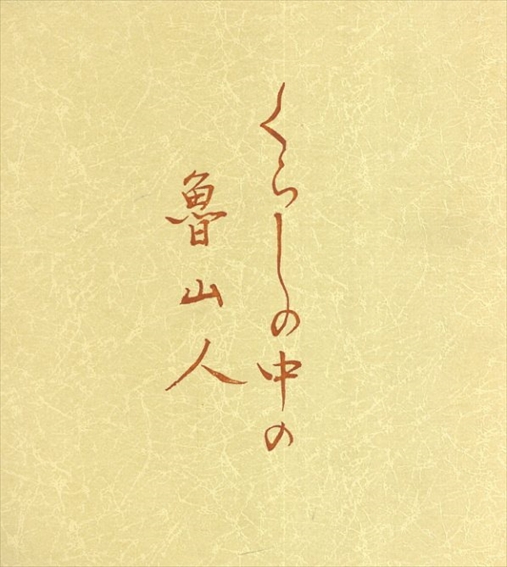 くらしの中の
魯山人